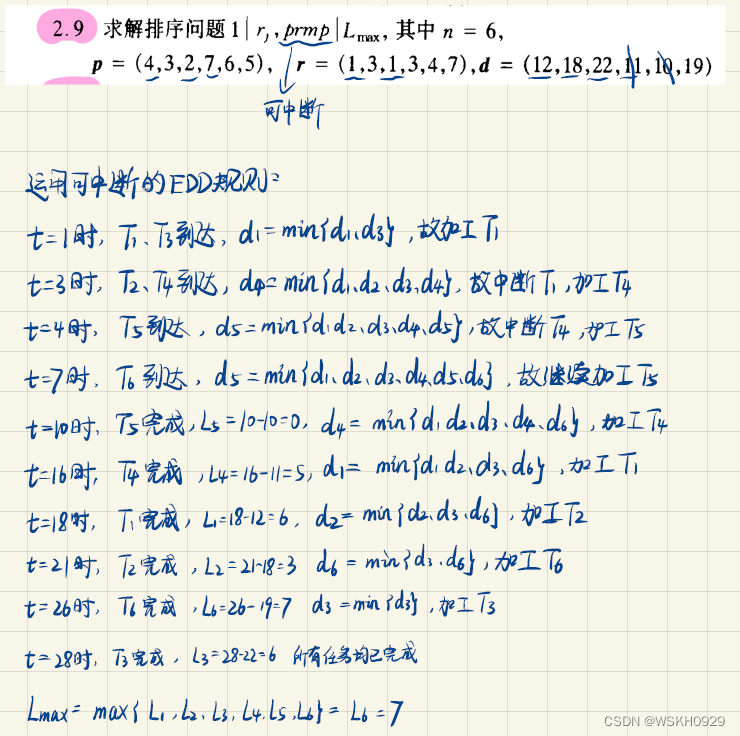 2.9 求解排序问题 1|r_j, prmp|L_max, 其中 n = 6,
p = (4,3,2,7,6,5), r = (1,3,1,3,4,7), d = (12,18,22,11,10,19)
可中断
运用可中断的EDD规则:
t=1时, T1、T3到达, d1=min{d1,d3}, 故加工T1
t=3时, T2、T4到达, d4=min{d1,d2,d3,d4}, 故中断T1, 加工T4
t=4时, T5到达, d5=min{d1,d2,d3,d4,d5}, 故中断T4, 加工T5
t=7时, T6到达, d5=min{d1,d2,d3,d4,d5,d6}, 故继续加工T5
t=10时, T5完成, L5=10-10=0, d4=min{d1,d2,d3,d4,d6}, 加工T4
t=16时, T4完成, L4=16-11=5, d1=min{d1,d2,d3,d6}, 加工T1
t=18时, T1完成, L1=18-12=6, d2=min{d2,d3,d6}, 加工T2
t=21时, T2完成, L2=21-18=3 d6=min{d3,d6}, 加工T6
t=26时, T6完成, L6=26-19=7 d3=min{d3}, 加工T3
t=28时, T3完成, L3=28-22=6 所有任务均已完成
Lmax=max{L1,L2,L3,L4,L5,L6}=L6=7
CSDN @WSKH0929